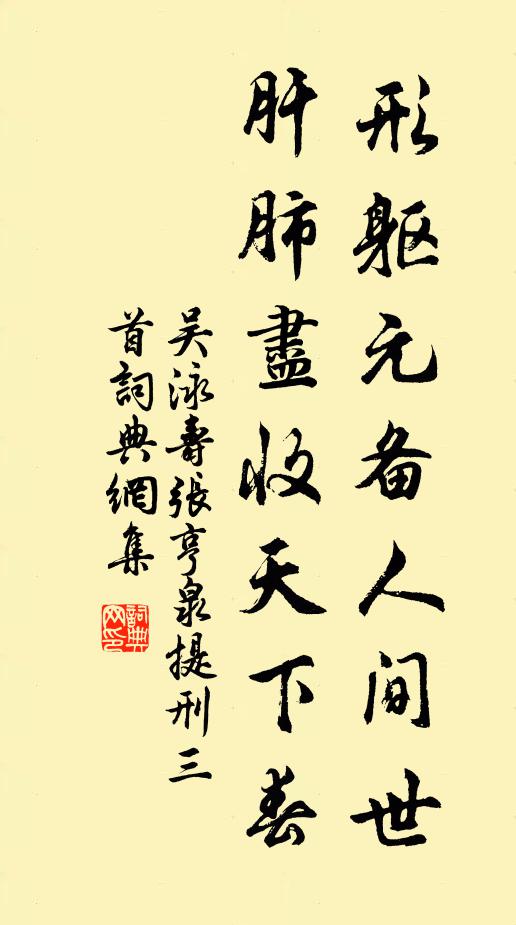 形躯元备人间世
肝肺盡收天下春
吴泳壽張亨泉提刑三
首詞典網集
詞典網印